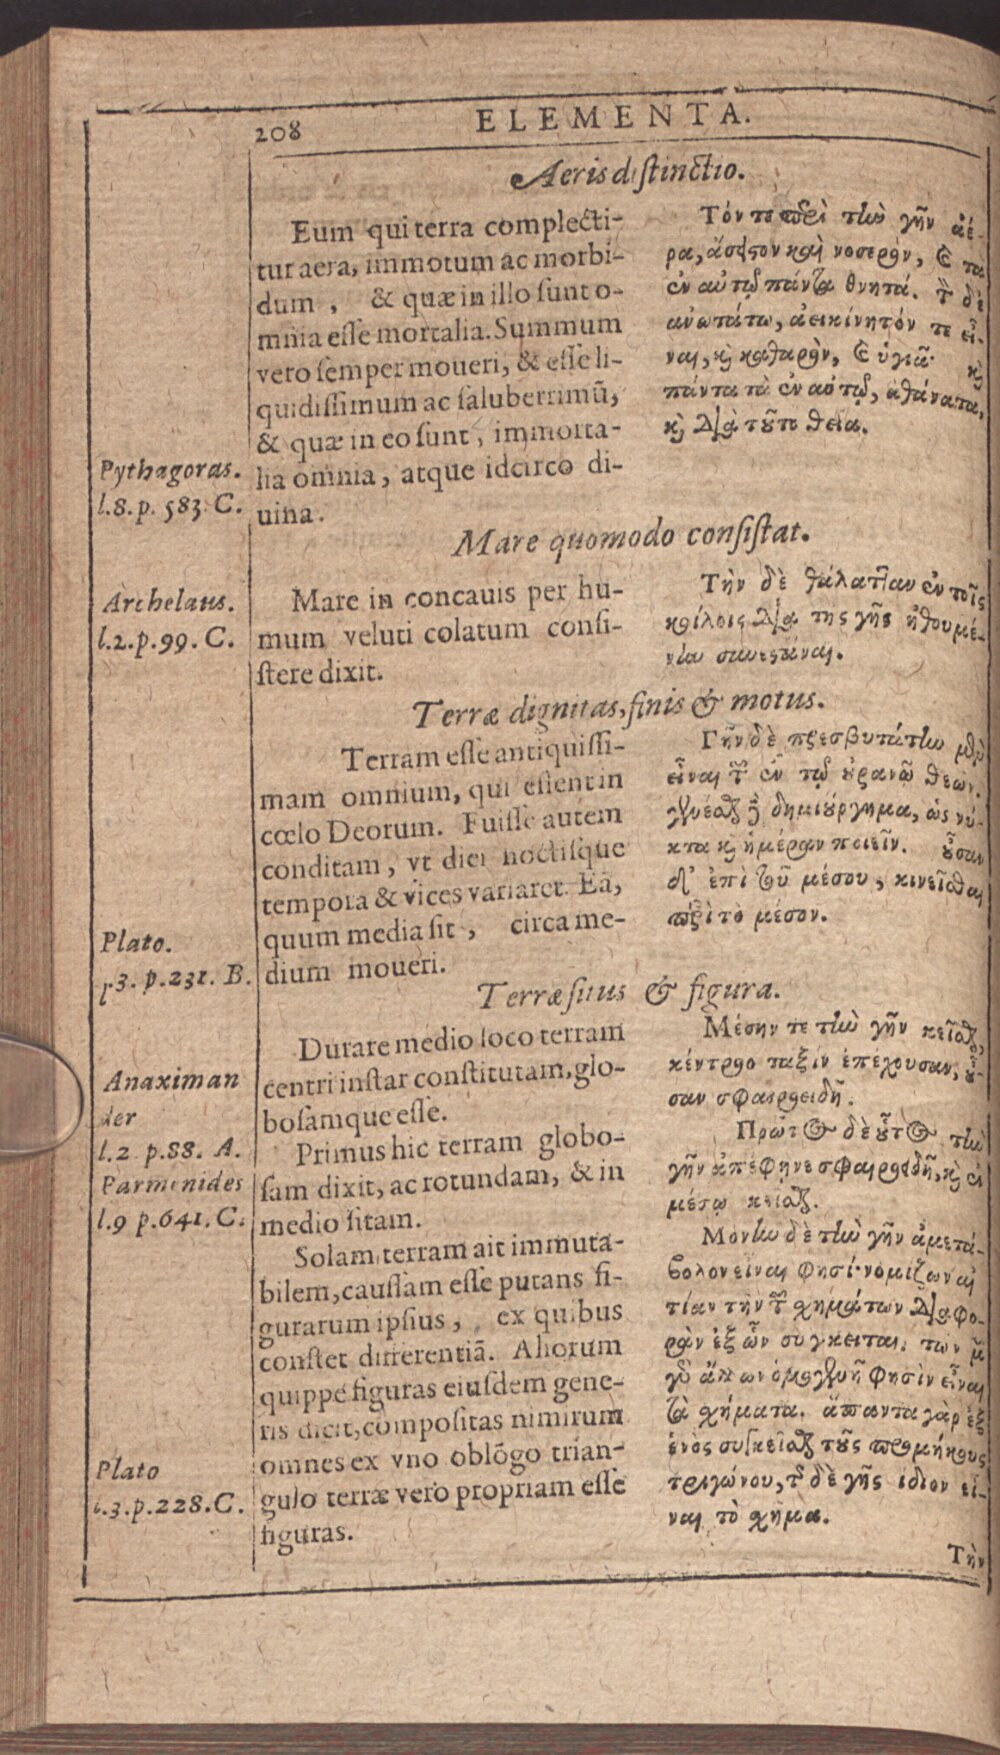 208
ELEMENTA.
Aeris distinctio.
Eum qui terra complecti-
tur aera, immotum ac morbi-
dum, & quæ in illo sunt o-
mnia esse mortalia. Summum
vero semper moueri, & esse li-
quidissimum ac saluberrimū,
& quæ in eo sunt, immorta-
lia omnia, atque idcirco di-
uina.
Τόν τε περὶ τὴν γῆν ἀέ-
ρα, ἄσειστον καὶ νοσερὸν, καὶ τὰ
ἐν αὐτῷ πάντα θνητά. τὸν δὲ
ἀνωτάτω, ἀεικίνητόν τε εἶ-
ναι, καὶ καθαρὸν, καὶ ὑγιᾶ· καὶ
πάντα τὰ ἐν αὐτῷ, ἀθάνατα,
καὶ διὰ τοῦτο θεῖα.
Pythagoras.
l.8.p. 583. C.
Mare quomodo consistat.
Mare in concauis per hu-
mum veluti colatum consi-
stere dixit.
Τὴν δὲ θάλατταν ἐν τοῖς
κοίλοις διὰ της γῆς ἠθουμέ-
νην συνεστάναι.
Archelaus.
l.2.p.99. C.
Terræ dignitas, finis & motus.
Terram esse antiquissi-
mam omnium, qui essent in
cœlo Deorum. Fuisse autem
conditam, vt diei noctisque
tempora & vices variaret. Eā,
quum media sit, circa me-
dium moueri.
Γῆν δὲ πρεσβυτάτην μὲν
εἶναι τῶν ἐν τῷ οὐρανῷ θεῶν.
γενέσθαι δὲ δημιούργημα, ὡς νύ-
κτα καὶ ἡμέραν ποιεῖν. οὖσαν
δ' ἐπὶ τοῦ μέσου, κινεῖσθαι
περὶ τὸ μέσον.
Plato.
l.3. p.231. B.
Terræ situs & figura.
Durare medio loco terram
centri instar constitutam, glo-
bosamque esse.
Μέσην τε τὴν γῆν κεῖσθαι,
κέντρου ταξιν ἐπέχουσαν, οὖ-
σαν σφαιροειδῆ.
Anaximan
der
l.2 p.88. A.
Primus hic terram globo-
sam dixit, ac rotundam, & in
medio sitam.
Πρῶτος δὲ οὗτος τὴν
γῆν ἀπέφηνε σφαιροειδῆ, καὶ ἐν
μέσῳ κεῖσθαι.
Parmenides
l.9 p.641. C.
Solam terram ait immuta-
bilem, caussam esse putans fi-
gurarum ipsius, ex quibus
constet differentiā. Aliorum
quippe figuras eiusdem gene-
ris dicit, compositas nimirum
omnes ex vno oblōgo trian-
gulo terræ vero propriam esse
figuras.
Μόνην δὲ τὴν γῆν ἀμετά-
βολον εἶναι φησί· νομίζων αἰ
τίαν τὴν τῶν σχημάτων διαφο-
ρὰν ἐξ ὧν συγκειται. των μὲν
γὰρ ἄλλων ὁμογενῆ φησὶν εἶναι
τὰ σχήματα. ἅπαντα γὰρ ἐξ
ἑνὸς συγκεῖσθαι τοῦ προμήκους
τριγώνου, τῆς δὲ γῆς ἴδιον εἶ-
ναι τὸ σχῆμα.
Plato
l.3.p.228.C.
Τὴν